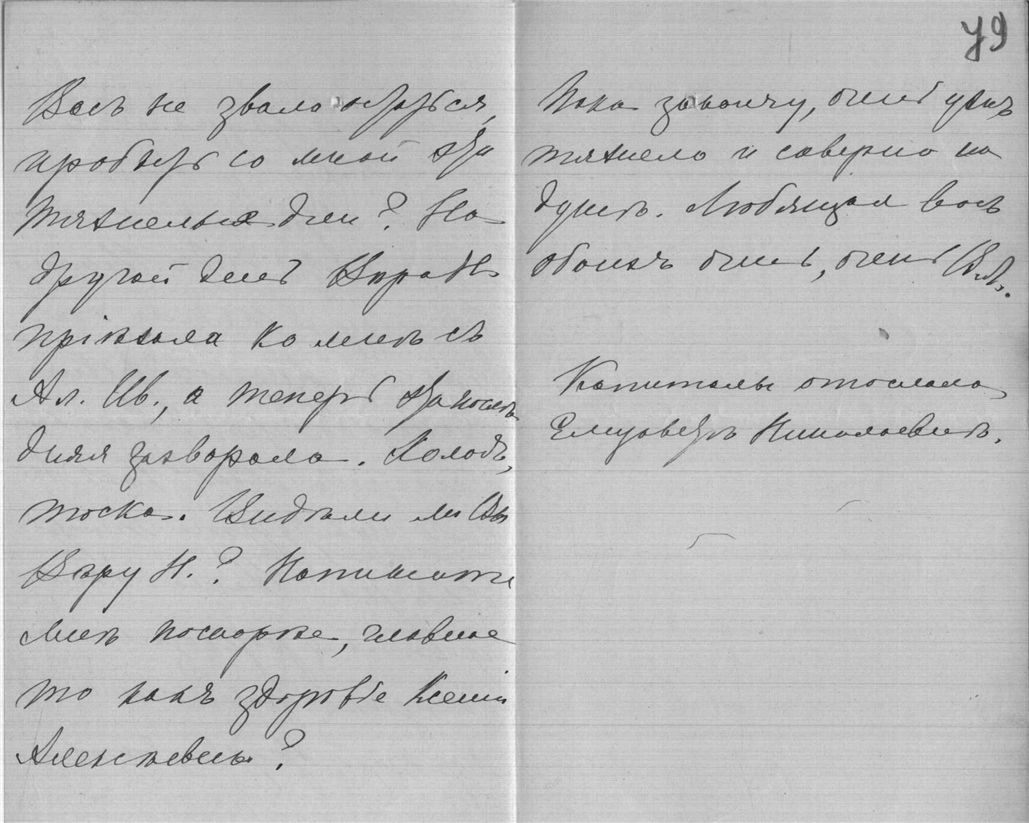 79
Васъ не звала остаться,
пробыть со мной эти
тяжелые дни? На
другой день Вѣра Н.
пріѣхала ко мнѣ съ
Ал. Ив., а теперь я
дняя захворала. Холодъ,
тоска. Видѣли ли Вы
Вѣру Н.? Напишите
мнѣ поскорѣе, главное
то какъ здоровье Ксеніи
Алексѣевны?
Пока закончу, очень ужъ
тяжело и скверно на
душѣ. Любящая васъ
обоихъ очень, очень В. Л.
Капиталы отослала
Елизаветѣ Николаевнѣ.